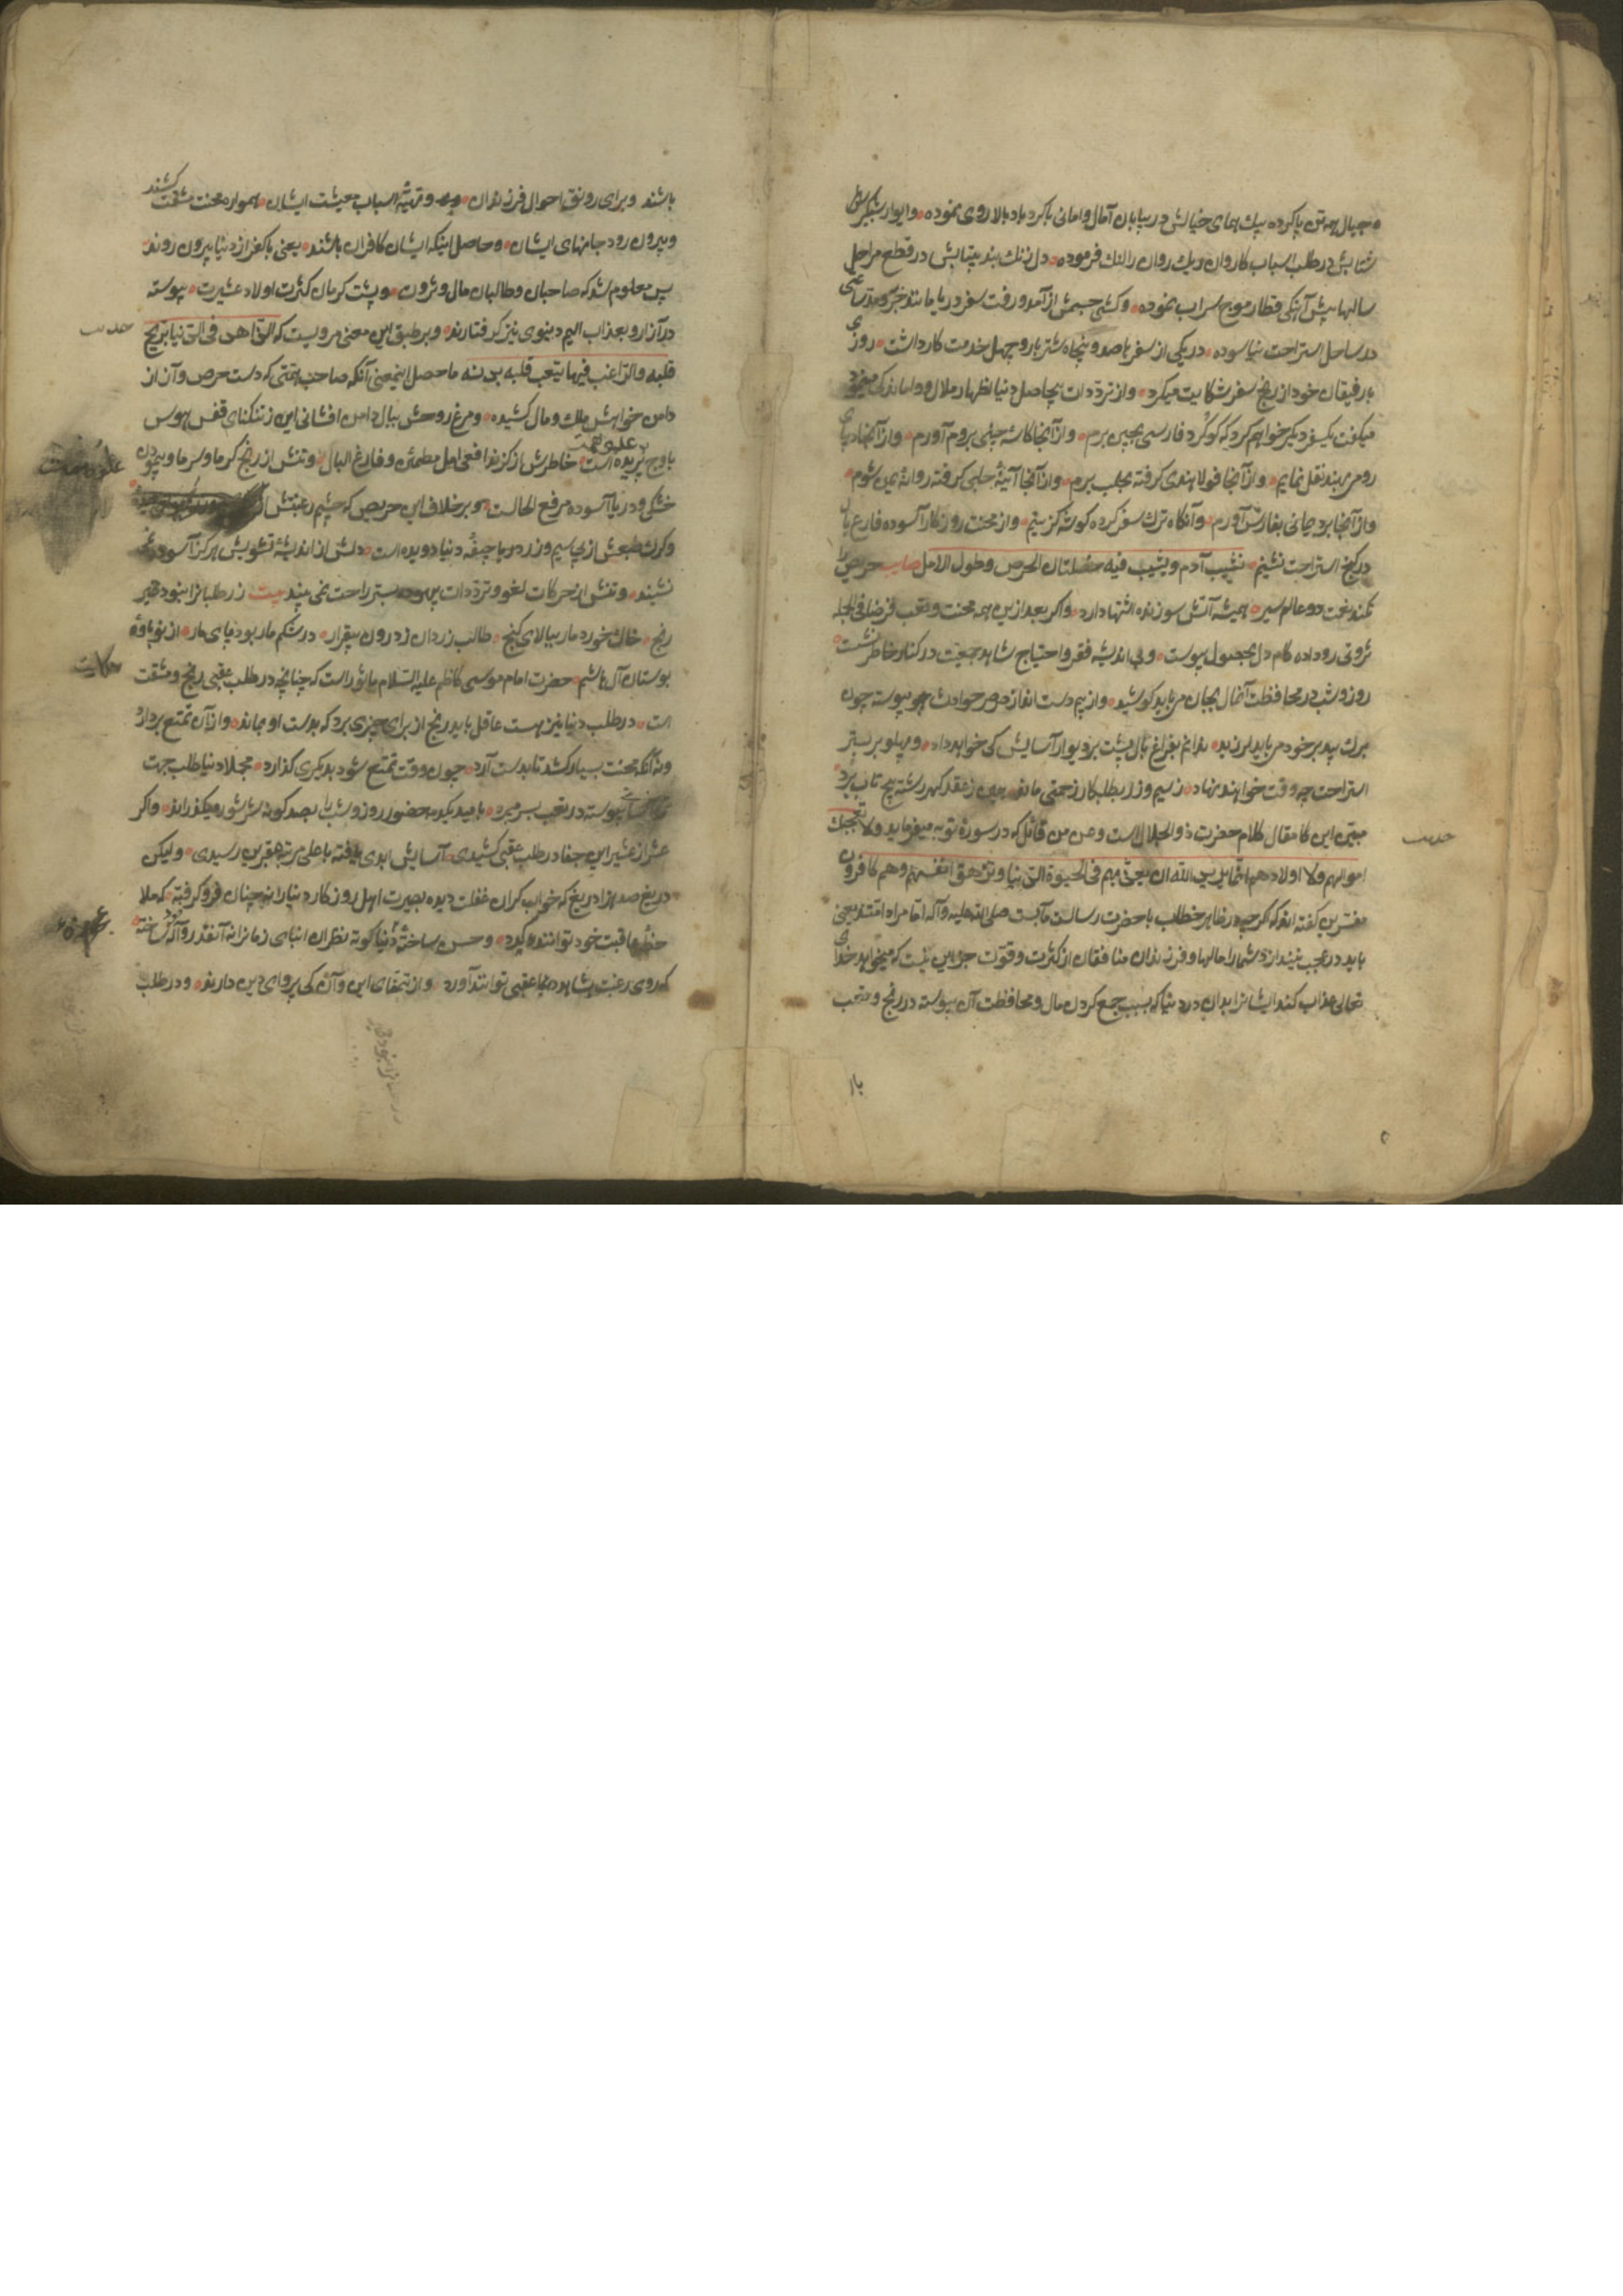 و جبال پا کرده پیک همای خیالش در بیابان آمال و امانی با کرد باد بالا روی نموده و ایوار شبکیر
شتابش در طلب اسباب کاروان ریک روان را لنک فرموده دل زنک بند بیتابش در قطع مراحل
سالها پیش آهنکی قطار موج سراب نموده و کشتی جسمش از آمد و رفت سفر دریا مانند
در ساحل استراحت نیاسوده در یکی از سفرها صد و پنجاه شتر بار و چهل خدمت کار داشت روزی
با رفیقان خود از رنج سفر شکایت میکرد و از ترددات بیحاصل دنیا اظهار ملال و واماندکی مینمود
میکفت یکسفر دیکر خواهم کرد که کوکرد فارسی بچین برم و از آنجا کاسه چینی بروم آورم و از آنجا دیبای
رومی بهند نقل نمایم و از آنجا فولاد هندی کرفته بحلب برم و از آنجا آیینه حلبی کرفته روانه یمن شوم
و از آنجا برد یمانی بفارس آورم و آنکاه ترک سفر کرده کوشه کزینم و از محنت روزکار آسوده فارغ بال
در کنج استراحت نشینم یشیب آدم و یشیب فیه خصلتان الحرص و طول الامل صایب حریص را
نکند نعمت دو عالم سیر همیشه آتش سوزنده اشتها دارد و اکر بعد از این همه محنت و تعب فرضا فی الجمله
ثروتی رو داده کام دل بحصول پیوست و بی اندیشه فقر و احتیاج شاهد جمعیت در کنار خاطر نشست
روز و شب در محافظت آنمال بجان می باید کوشید و از بیم دست انداز صرصر حوادث پیوسته چون
برک بید بر خود می باید لرزید ندانم بفراغ بال پشت بر دیوار آسایش کی خواهد داد و پهلو بر بستر
استراحت چه وقت خواهند نهاد ز سیم و زر بطلبکار زحمتی ماند همین ز عقد کهر رشته پیچ تاب برد
مبین این کلام مقال کلام حضرت ذو الجلال است و من من قائل که در سوره توبه میفرماید و لا تعجبک
اموالهم و لا اولادهم انما یرید الله ان یعذبهم بها فی الحیوة الدنیا و تزهق انفسهم و هم کافرون
مفسرین کفته اند که اکر چه در ظاهر خطاب با حضرت رسالت مآبست صلی الله علیه و آله اما مراد امتند یعنی
باید در عجب نیندازد شما را مالها و فرزندان منافقان از کثرت و قوت جز این نیست که میخواهد خدای
تعالی عذاب کند ایشانرا بدان در دنیا که بسبب جمع کردن مال و محافظت آن پیوسته در رنج و تعب
با
حدیث
باشند و برای رونق احوال فرزندان و تهیه اسباب معیشت ایشان همواره محنت مشقت کشند
و بیرون رود جانهای ایشان و حاصل اینکه ایشان کافران باشند یعنی با کفر از دنیا بیرون روند
پس معلوم شد که صاحبان و طالبان مال و ثروت و پشت کرمان کثرت اولاد عشیرت پیوسته
در آزار و بعذاب الیم دنیوی نیز کرفتارند و بر طبق این معنی مرویست که الزاهد فی الدنیا یریح
قلبه و الراغب فیها یتعب قلبه بدنه ما حصل اینمعنی آنکه صاحب همتی که دست حرص و آز از
دامن خواهش ملک و مال کشیده و مرغ روحش ببال دامن افشانی این ز تنکنای قفس هوس
باوج علو همت پریده است خاطرش از کزند افعی امل مطمئن و فارغ البال و تنش از رنج کرما و سرما و پیمودن
خشکی و دریا آسوده مرفع الحالست و بر خلاف این حریص که چشم رغبتش از
و کرک طبعش از پی سیم و زر در پا جیفه دنیا دویده است دلش از اندیشه تشویش هرکز آسوده
نشیند و تنش از حرکات لغو و ترددات بیهوده بستر راحت نمی بیند بیت زر طلبانرا بنود
رنج خاک خورد مار ببالای کنج طالب زردان ز درون بیقرار در شکم مار بود پای مار از نوباوه
بوستان آل هاشم حضرت امام موسی کاظم علیه السلام ماثور است که چنانچه در طلب عقبی رنج و مشقت
است در طلب دنیا نیز هست عاقل باید رنج از برای چیزی برد که بدست او بماند و از آن تمتع بردارد
و نه آنکه محنت بسیار کشد تا بدست آرد چون وقت تمتع شود بدیکری کذارد مجملا دنیا طلب جهت
پیوسته در تعب بسر میبرد بامید یکدم حضور روز و شب با صد کونه شر شور میکذراند و اکر
عشر از عشیر این جفا در طلب عقبی کشیدی آسایش ابدی یافته باعلی مرتبه مقربین رسیدی و لیکن
دریغ صد هزار دریغ که خواب کران غفلت دیده بصیرت اهل روزکار دنیا را نه چنان فرو کرفته که ملا
حظه عاقبت خود توانند کرد و حسن ساخته دنیا کوته نظران ابنای زمانرا نه آنقدر واله خود ساخته
که روی رغبت بشاهد رعنا عقبی توانند آورد و از تمنای این و آن کی پروای دین دارند و در طلب
حدیث
علو همت
حکایت